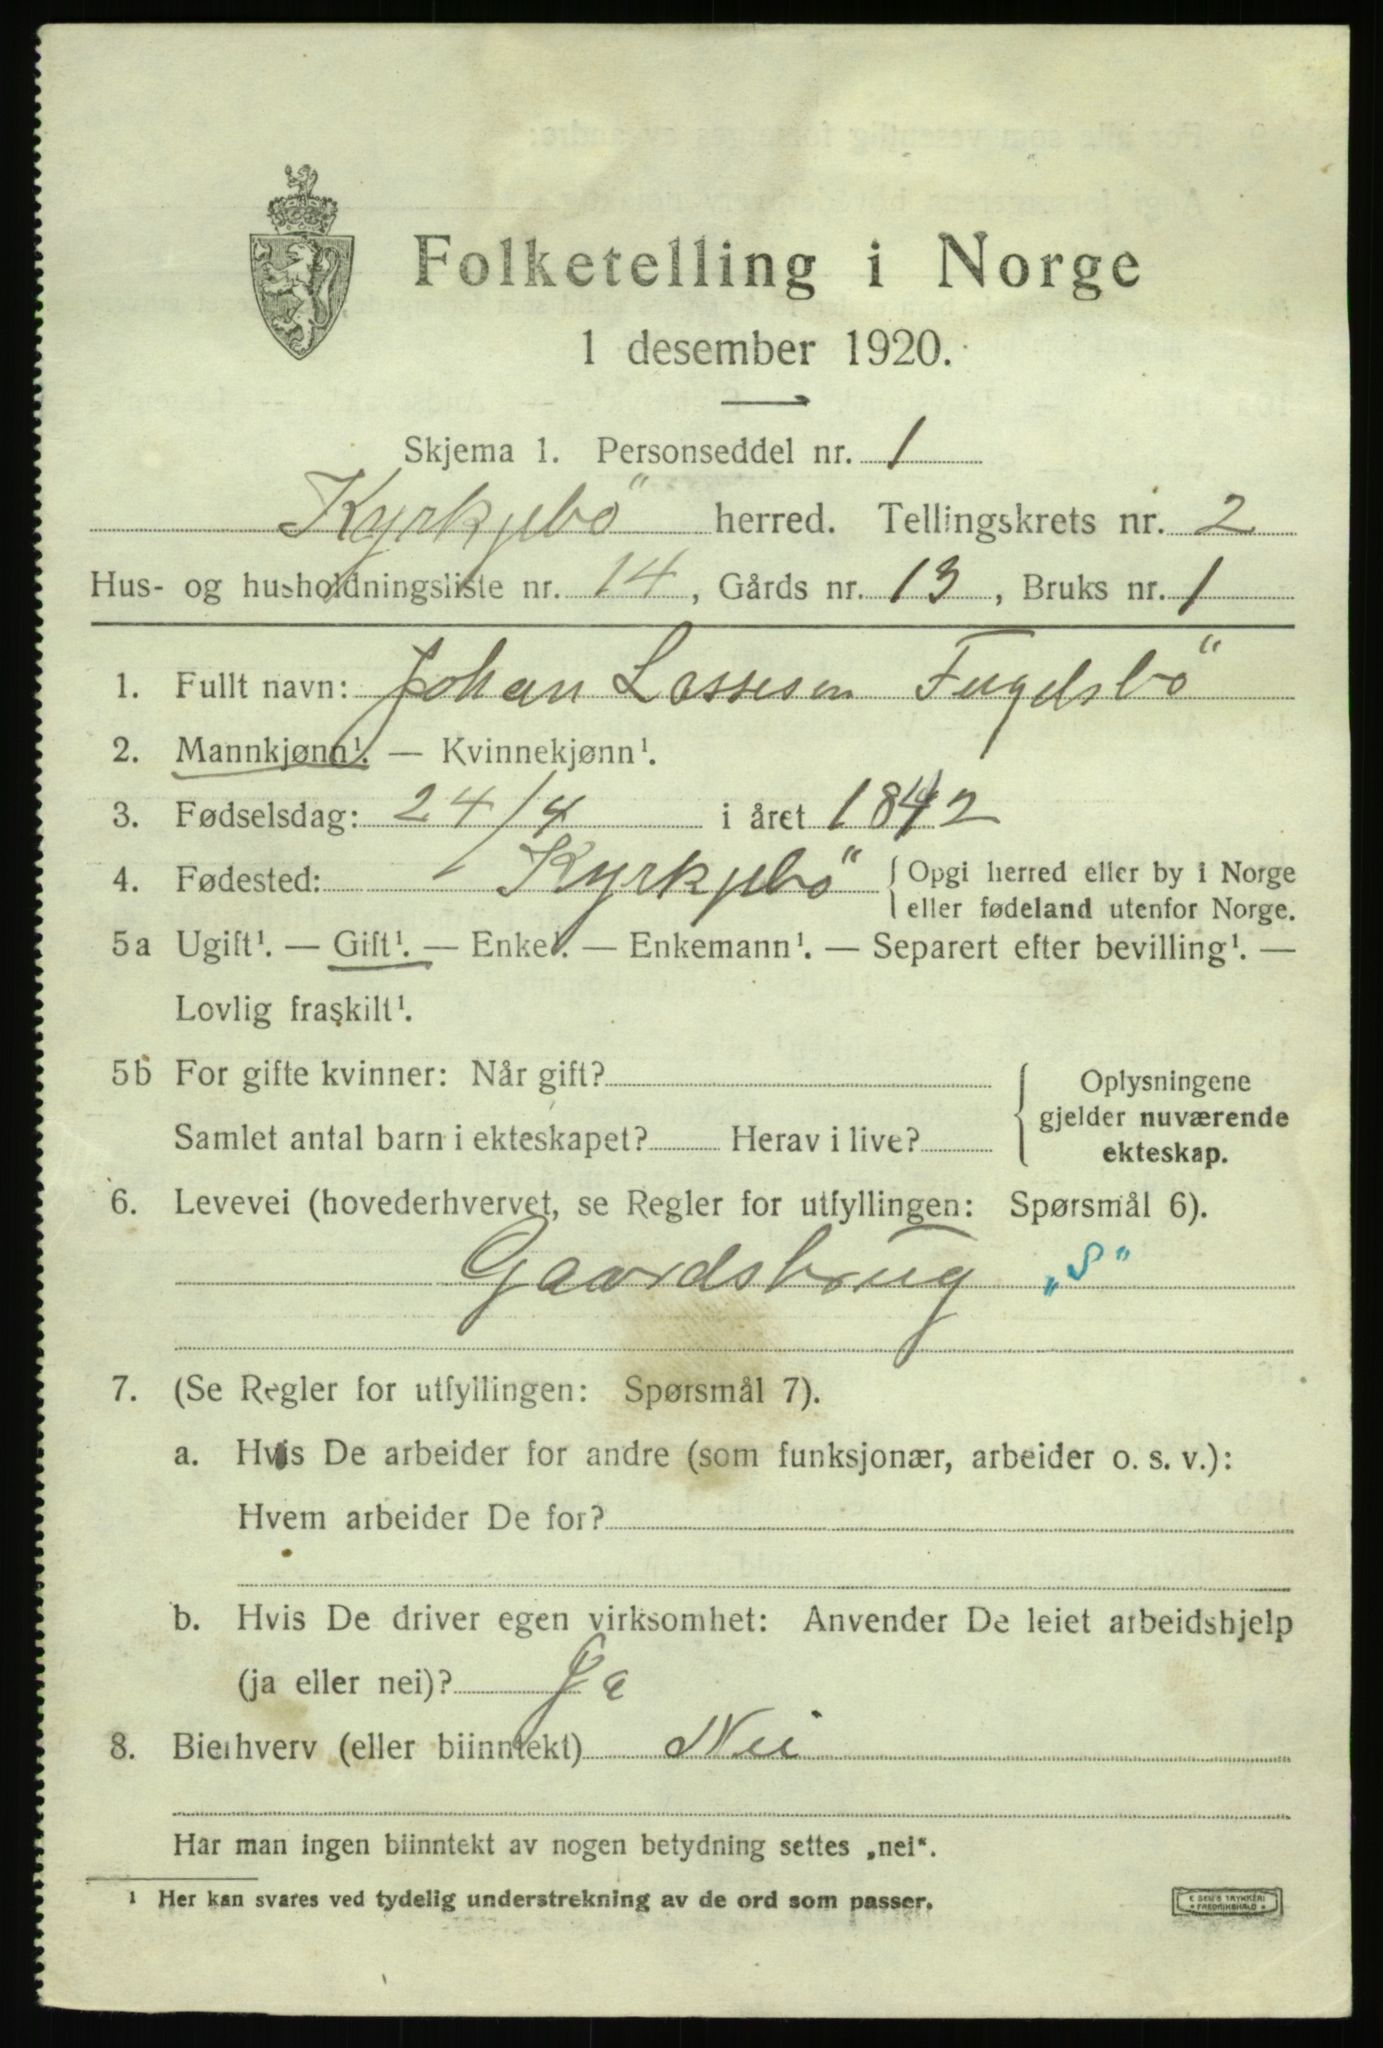 Folketelling i Norge
1 desember 1920.
Skjema 1. Personseddel nr. 1
Kyrkjebö herred. Tellingskrets nr. 2
Hus- og husholdningsliste nr. 14, Gårds nr. 13, Bruks nr. 1
1. Fullt navn: Johan Lassesen Fugelsbö
2. Mannkjønn¹. — Kvinnekjønn¹.
3. Fødselsdag: 24/4 i året 1842
4. Fødested: Kyrkjebö { Opgi herred eller by i Norge
eller fødeland utenfor Norge.
5a Ugift¹. — Gift¹. — Enke¹. — Enkemann¹. — Separert efter bevilling¹. —
Lovlig fraskilt¹.
5b For gifte kvinner: Når gift?
Samlet antal barn i ekteskapet? Herav i live?
{ Oplysningene
gjelder nuværende
ekteskap.
6. Levevei (hovederhvervet, se Regler for utfyllingen: Spørsmål 6).
Gaardsbrug „S“
7. (Se Regler for utfyllingen: Spørsmål 7).
a. Hvis De arbeider for andre (som funksjonær, arbeider o. s. v.):
Hvem arbeider De for?
b. Hvis De driver egen virksomhet: Anvender De leiet arbeidshjelp
(ja eller nei)? Ja
8. Bierhverv (eller biinntekt) Nei
Har man ingen biinntekt av nogen betydning settes „nei“.
¹ Her kan svares ved tydelig understrekning av de ord som passer.
E SEM'S TRYKKERI
* FREDRIKSHALD *